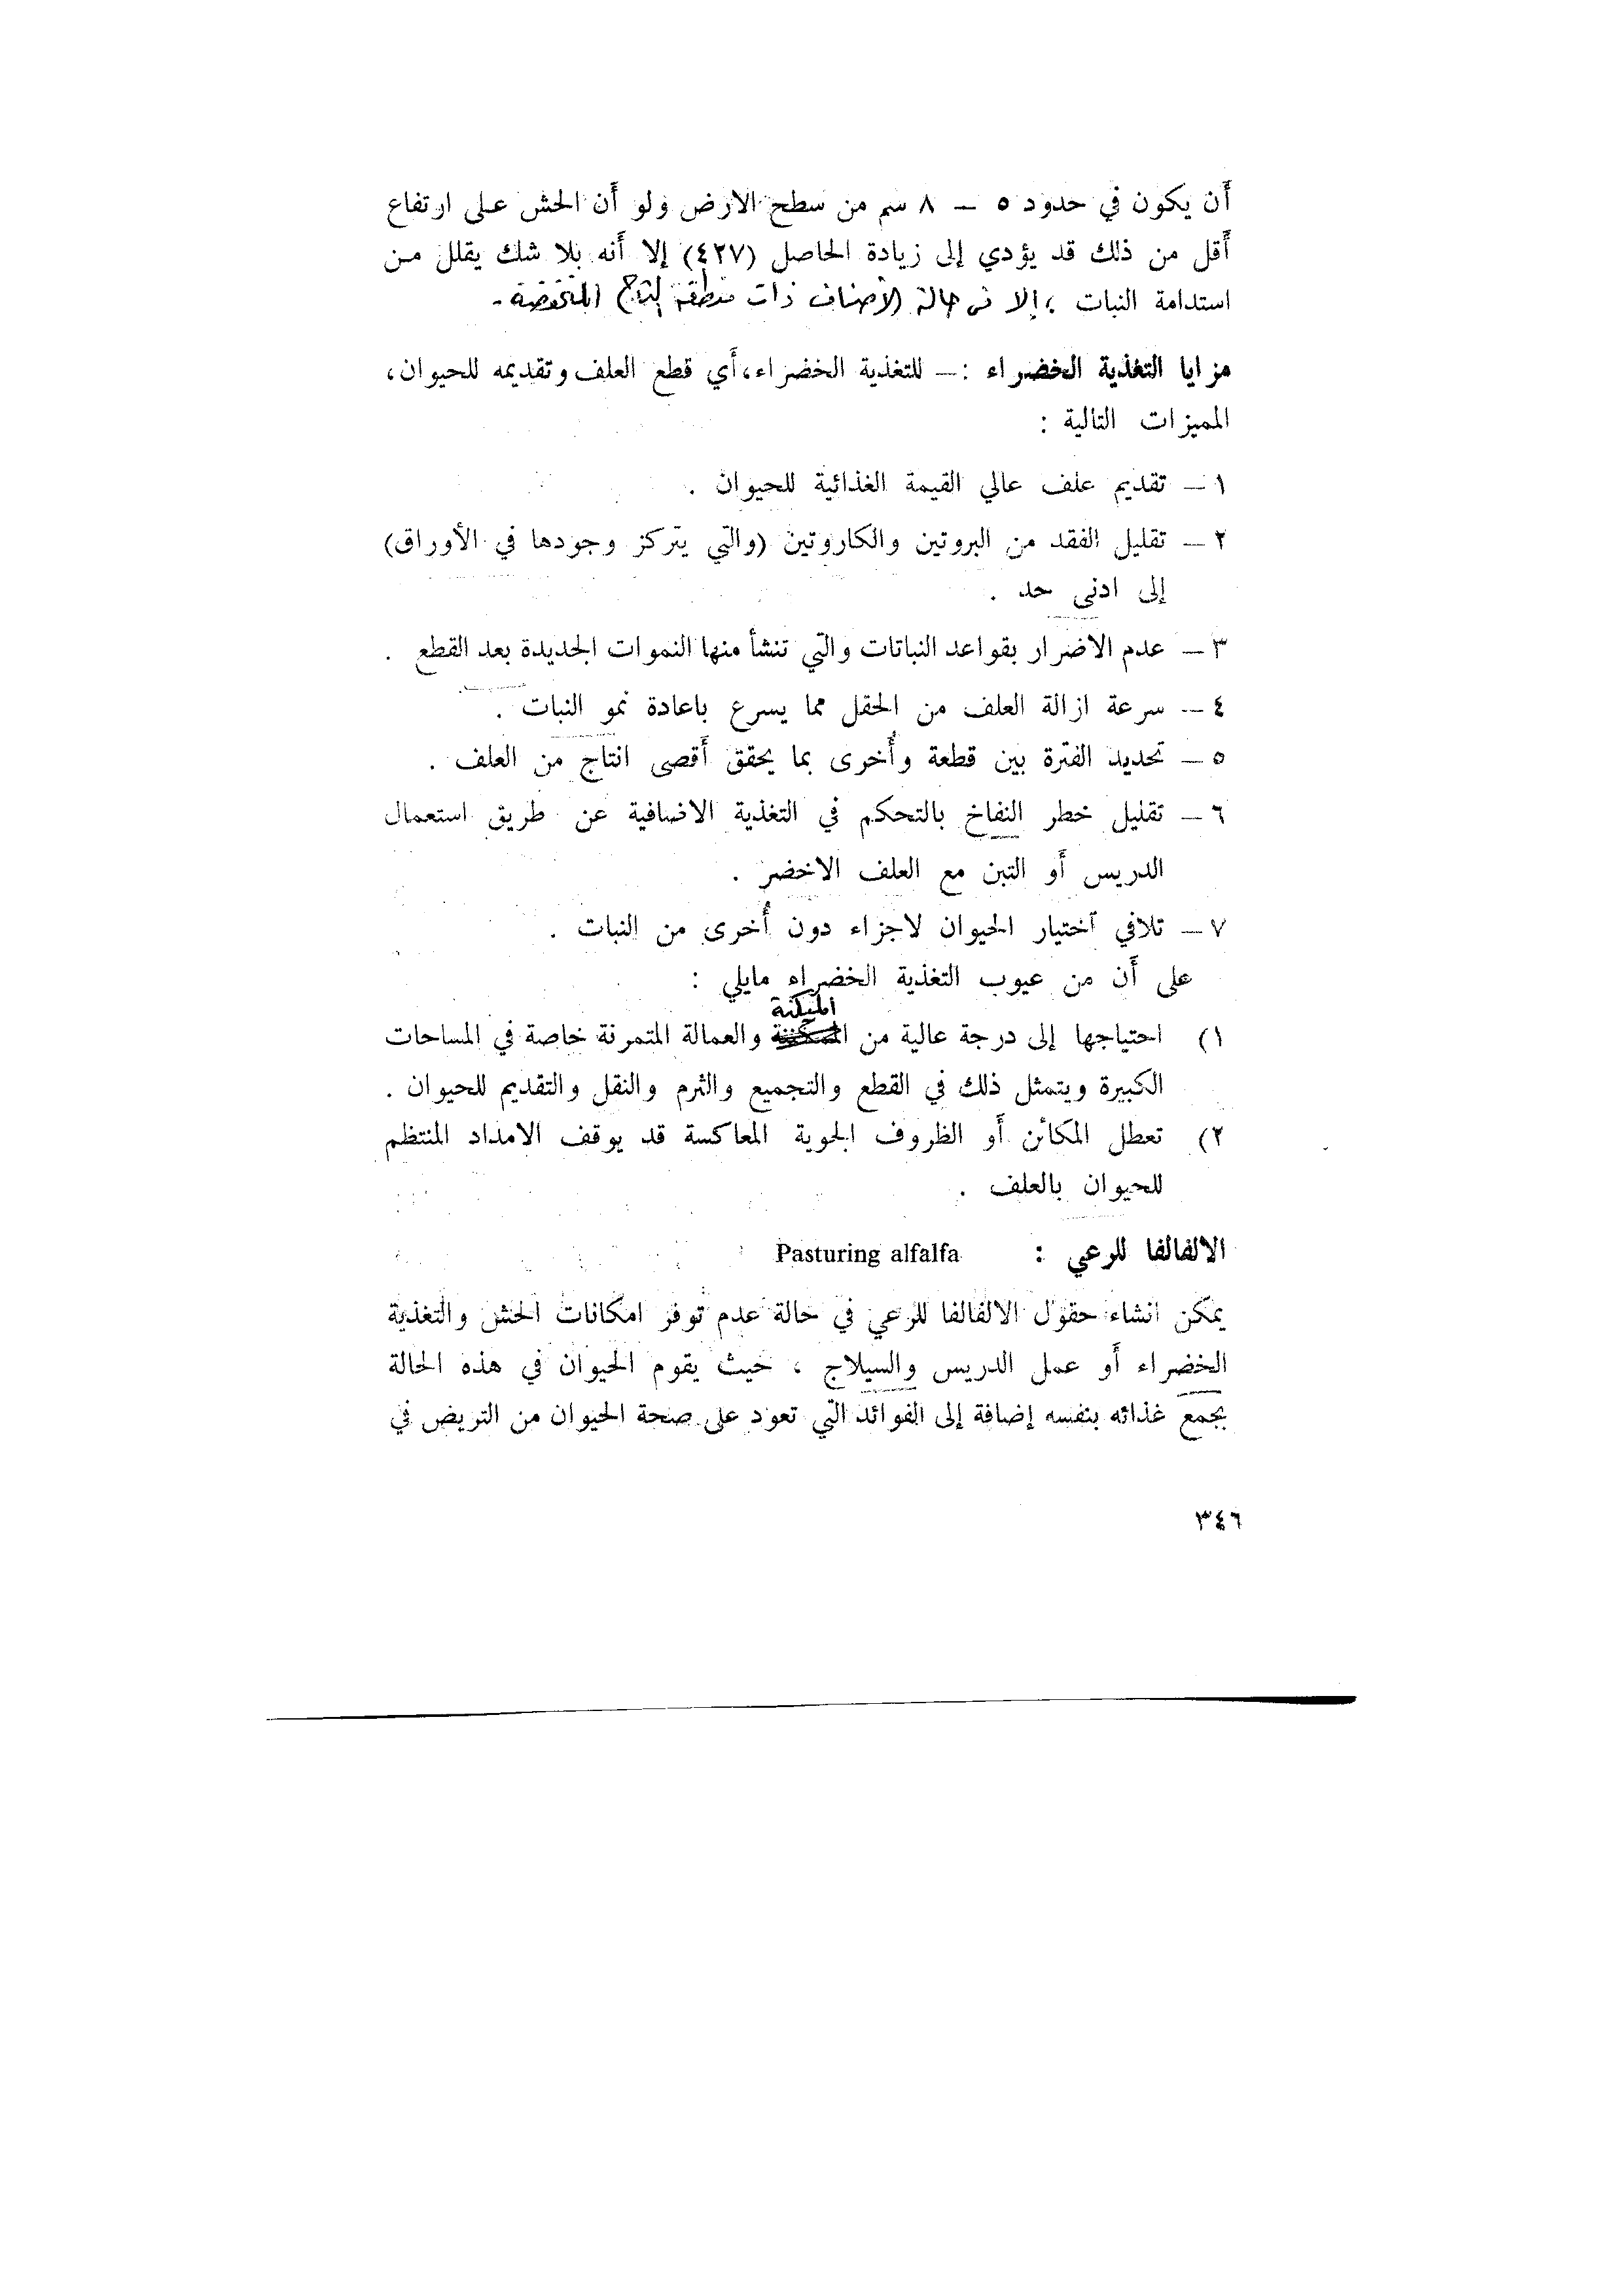 أن يكون في حدود ٥ — ٨ سم من سطح الارض ولو أن الحش على ارتفاع
أقل من ذلك قد يؤدي إلى زيادة الحاصل (٤٢٧) إلا أنه بلا شك يقلل من
استدامة النبات ، إلا في حالة الأصناف ذات منطقة التاج المنخفضة .
مزايا التغذية الخضراء : — للتغذية الخضراء، أي قطع العلف وتقديمه للحيوان،
المميزات التالية :
١ — تقديم علف عالي القيمة الغذائية للحيوان .
٢ — تقليل الفقد من البروتين والكاروتين (والتي يتركز وجودها في الأوراق)
إلى ادنى حد .
٣ — عدم الاضرار بقواعد النباتات والتي تنشأ منها النموات الجديدة بعد القطع .
٤ — سرعة ازالة العلف من الحقل مما يسرع باعادة نمو النبات .
٥ — تحديد الفترة بين قطعة وأخرى بما يحقق أقصى انتاج من العلف .
٦ — تقليل خطر النفاخ بالتحكم في التغذية الاضافية عن طريق استعمال
الدريس أو التبن مع العلف الاخضر .
٧ — تلافي اختيار الحيوان لاجزاء دون أخرى من النبات .
على أن من عيوب التغذية الخضراء مايلي :
المكننة
١) احتياجها إلى درجة عالية من والعمالة المتمرنة خاصة في المساحات
الكبيرة ويتمثل ذلك في القطع والتجميع والثرم والنقل والتقديم للحيوان .
٢) تعطل المكائن أو الظروف الجوية المعاكسة قد يوقف الامداد المنتظم
للحيوان بالعلف .
الالفالفا للرعي : Pasturing alfalfa
يمكن انشاء حقول الالفالفا للرعي في حالة عدم توفر امكانات الحش والتغذية
الخضراء أو عمل الدريس والسيلاج ، حيث يقوم الحيوان في هذه الحالة
بجمع غذائه بنفسه إضافة إلى الفوائد التي تعود على صحة الحيوان من التريض في
٣٤٦